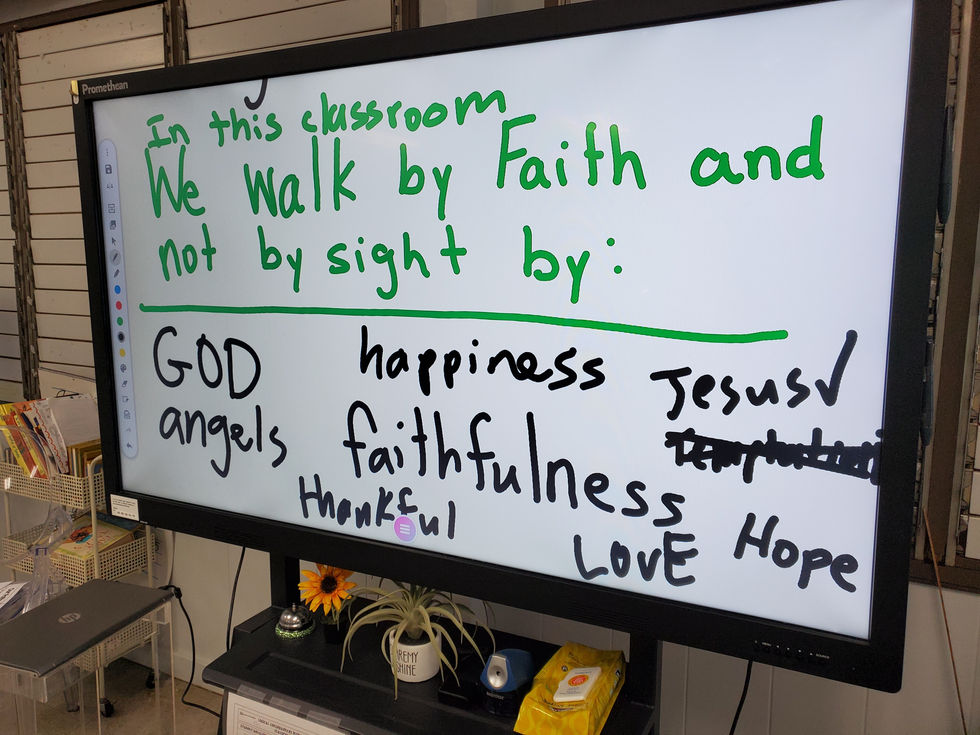 Promethean
In this classroom
We walk by Faith and
not by sight by:
GOD happiness Jesus
angels faithfulness
thankful
LOVE Hope
hp